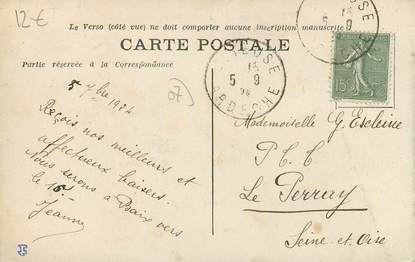 12 €
Le Verso (côté vue) ne doit comporter aucune inscription manuscrite
CARTE POSTALE
Partie réservée à la Correspondance
15
5 9
24
ARDÈCHE
15
5 9
15c
07
5 7bre 1924
Reçois nos meilleurs et
affectueux baisers.
Nous serons à Baix vers
le 15.
Jeanne
Mademoiselle G. Escleine
P. C. C.
Le Perray
Seine-et-Oise